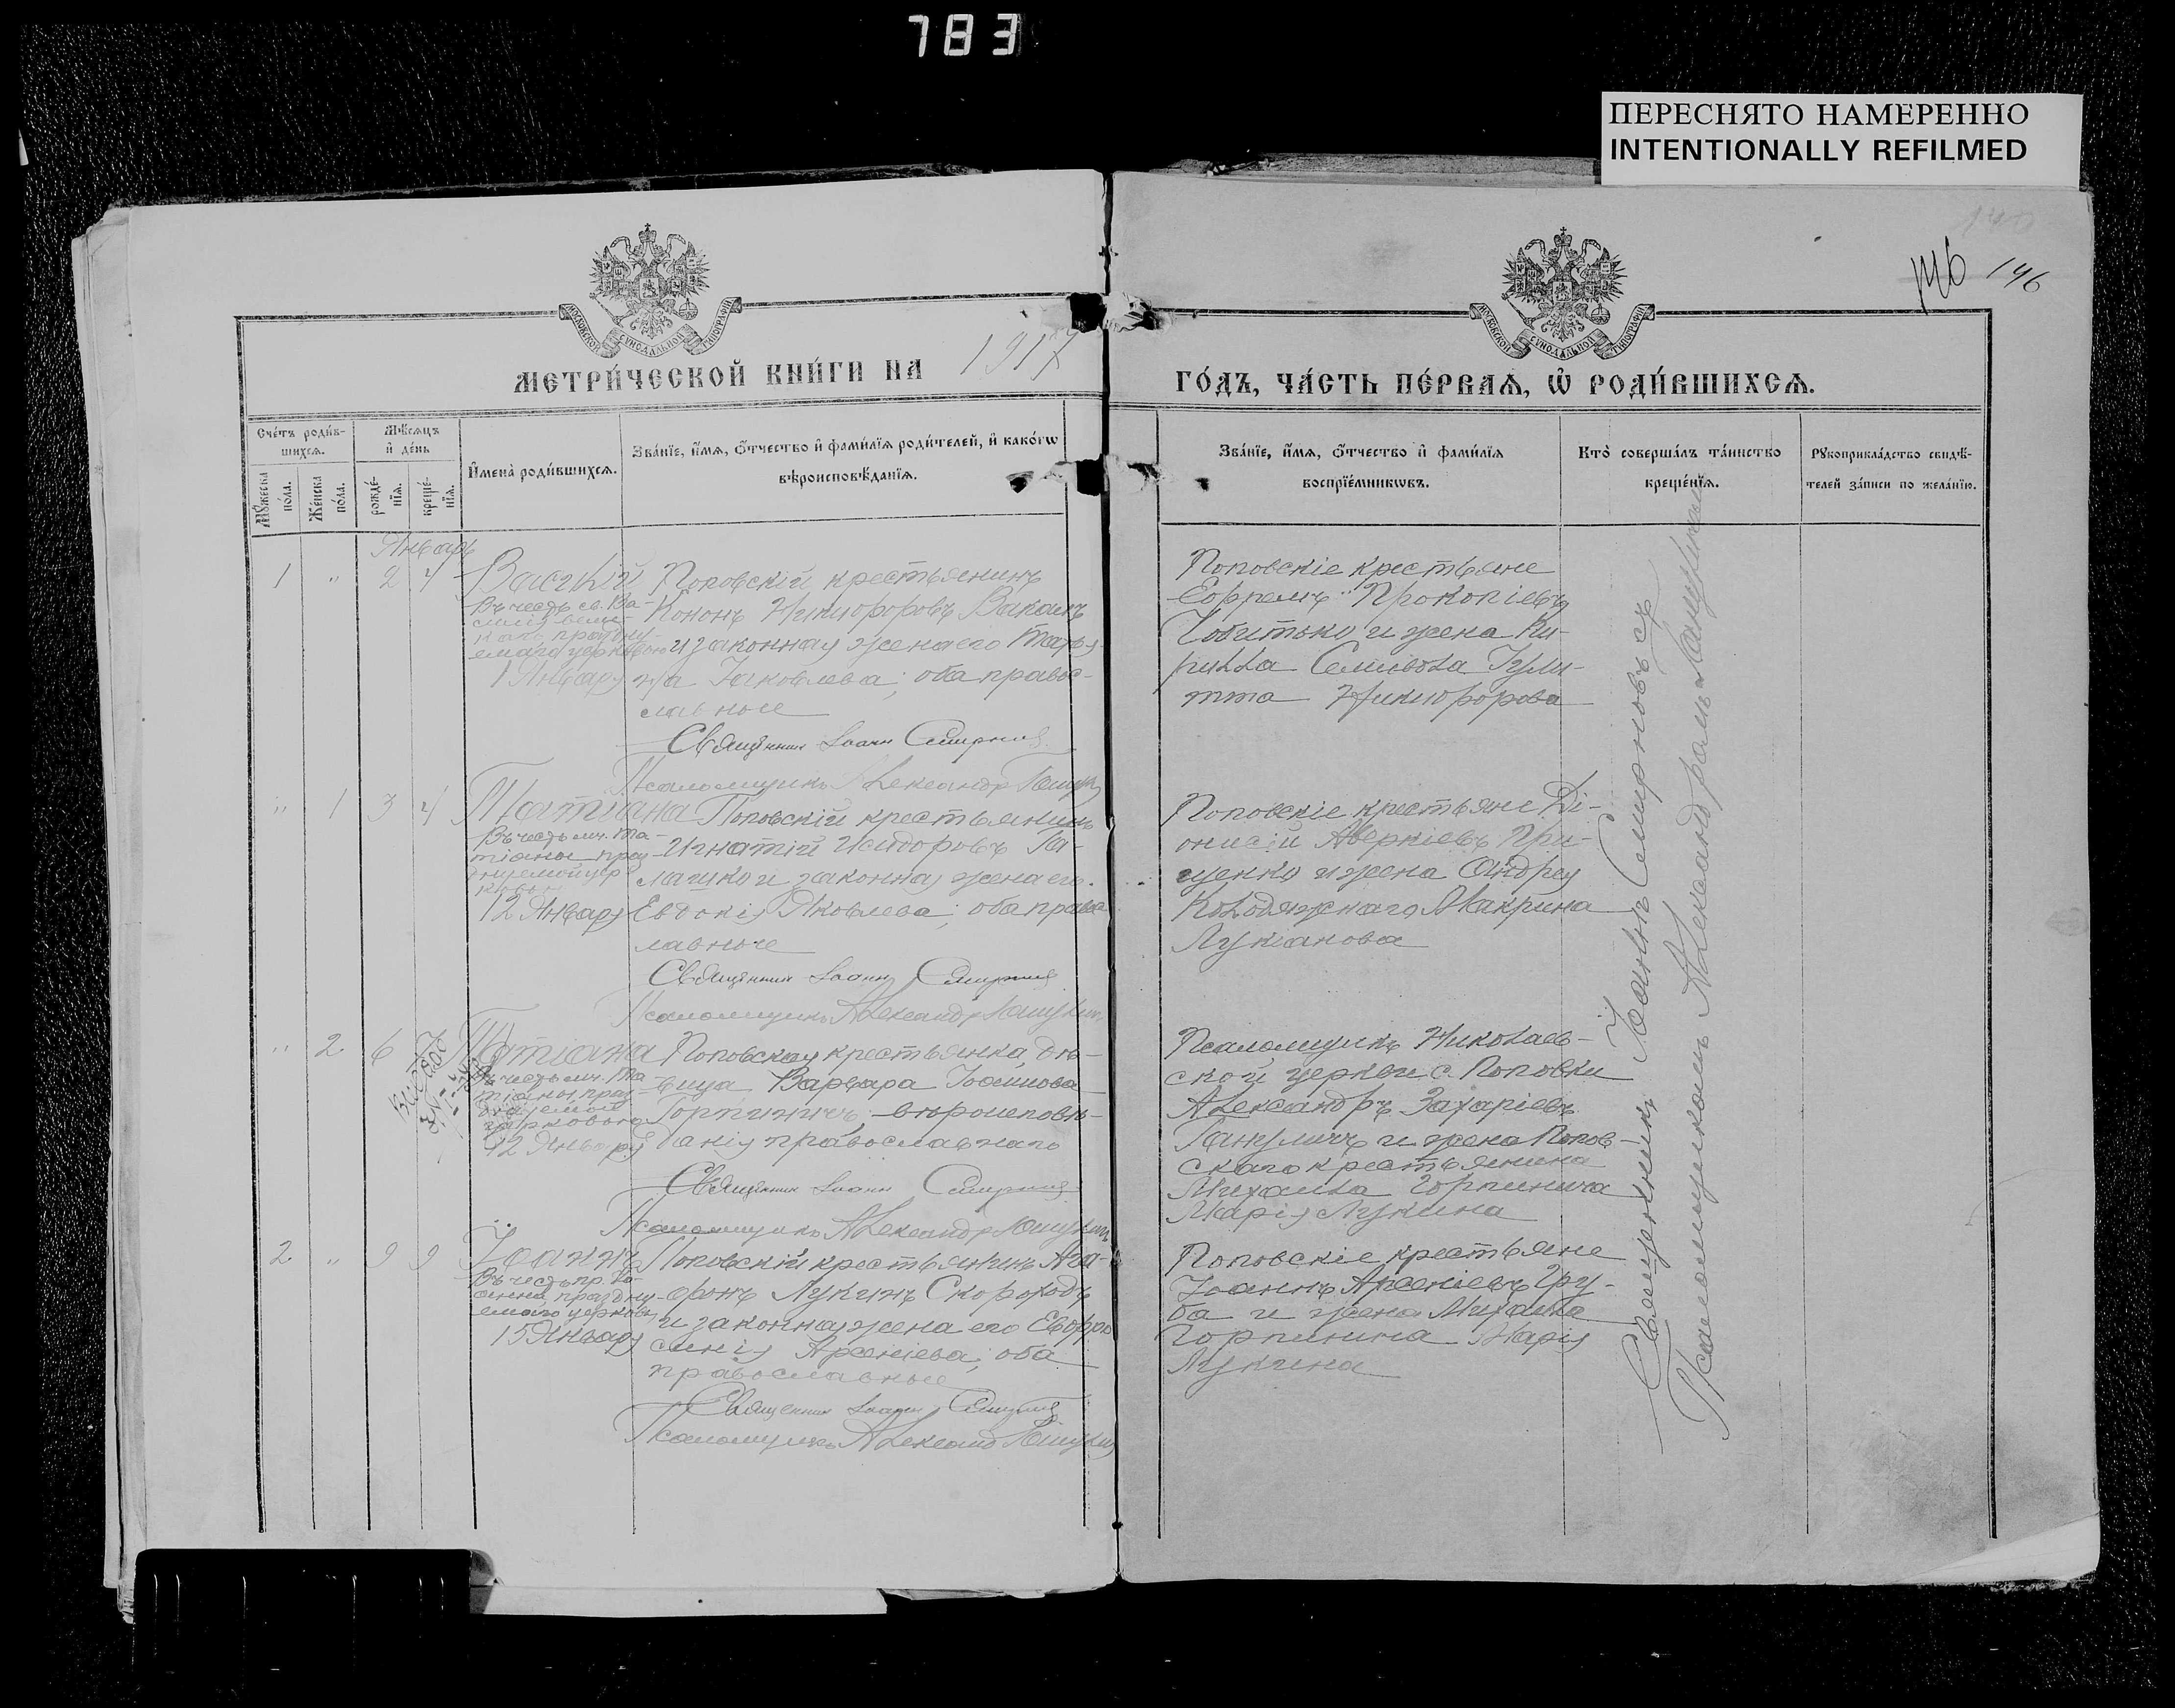 783
ПЕРЕСНЯТО НАМЕРЕННО
INTENTIONALLY REFILMED
146 146
МОСКОВСКОЙ СУНОДАЛЬНОЙ ТИПОГРАФІИ
МОСКОВСКОЙ СУНОДАЛЬНОЙ ТИПОГРАФІИ
МЕТРИ́ЧЕСКОЙ КНИ́ГИ НА 1917
ГО́ДЪ, ЧА́СТЬ ПЕ́РВАѦ, Ѽ РОДИ́ВШИХСѦ.
Сче́тъ роди́вшихсѧ.
Мѣ́сѧцъ и҆ де́нь
Мꙋ́жеска по́ла.
Же́нска по́ла.
рожде́нїѧ.
креще́нїѧ.
И҆мена̀ роди́вшихсѧ.
Зва́нїе, и҆́мѧ, ѻ҆́тчество и҆ фами́лїѧ роди́телей, и҆ како́гѡ
вѣроисповѣ́данїѧ.
Зва́нїе, и҆́мѧ, ѻ҆́тчество и҆ фами́лїѧ
воспрїе́мникѡвъ.
Кто̀ соверша́лъ та́инство
креще́нїѧ.
Рꙋкоприкла́дство свидѣ́-
телей за́писи по жела́нїю.
Январь
1 " 2 4 Василій
Въ честь св. Ва-
силія вели-
каго праздну-
емаго церковью
1 Января
Поповскій крестьянинъ
Кононъ Никифоровъ
и законная жена его Татья-
на Іаковлева; оба правос-
лавные
Священник Іоанн Смирнов
Псаломщикъ Александръ
Поповскіе крестьяне
Ефремъ Прокопіевъ
Чобитько и жена Ки-
рилла Семивола Іули-
тта Никифорова
" 1 3 4 Татіана
Въ честь мч. Та-
тіаны праз-
днуемой цер-
ковью
12 Января
Поповскій крестьянинъ
Игнатій Исидоровъ Га-
лашко и законная жена его
Евдокія Яковлева; оба правос-
лавные
Священник Іоанн Смирнов
Псаломщикъ Александръ
Поповскіе крестьяне Ді-
онисій Аверкіевъ Гри-
щенко и жена Андрея
Колодяжнаго Макрина
Лукіанова
" 2 6 7 Татіана
Въ честь мч. Та-
тіаны праз-
днуемой
церковью
12 Января
Поповская крестьянка, дѣ-
вица Варвара Іоаннова
Горпиничъ - вѣроисповѣ-
данія православнаго
Священник Іоанн Смирнов
Псаломщикъ Александръ
Псаломщикъ Николаев-
ской церкви с. Поповки
Александръ Захаріевъ
и жена Попов-
скаго крестьянина
Михаила Горпинича
Марія Лукина
2 " 9 9 Іоаннъ
Въ честь пр. Іо-
анна праздну-
емаго церковью
15 Января
Поповскій крестьянинъ Ага-
фонъ Лукинъ Скороходъ
и законная жена его Евфро-
синія Арсеніева; оба
православные
Священник Іоанн Смирнов
Псаломщикъ Александръ
Поповскіе крестьяне
Іоаннъ Арсеніевъ Гру-
ба и жена Михаила
Горпинича Марія
Лукина
Священникъ Іоаннъ Смирновъ съ
Псаломщикомъ Александромъ